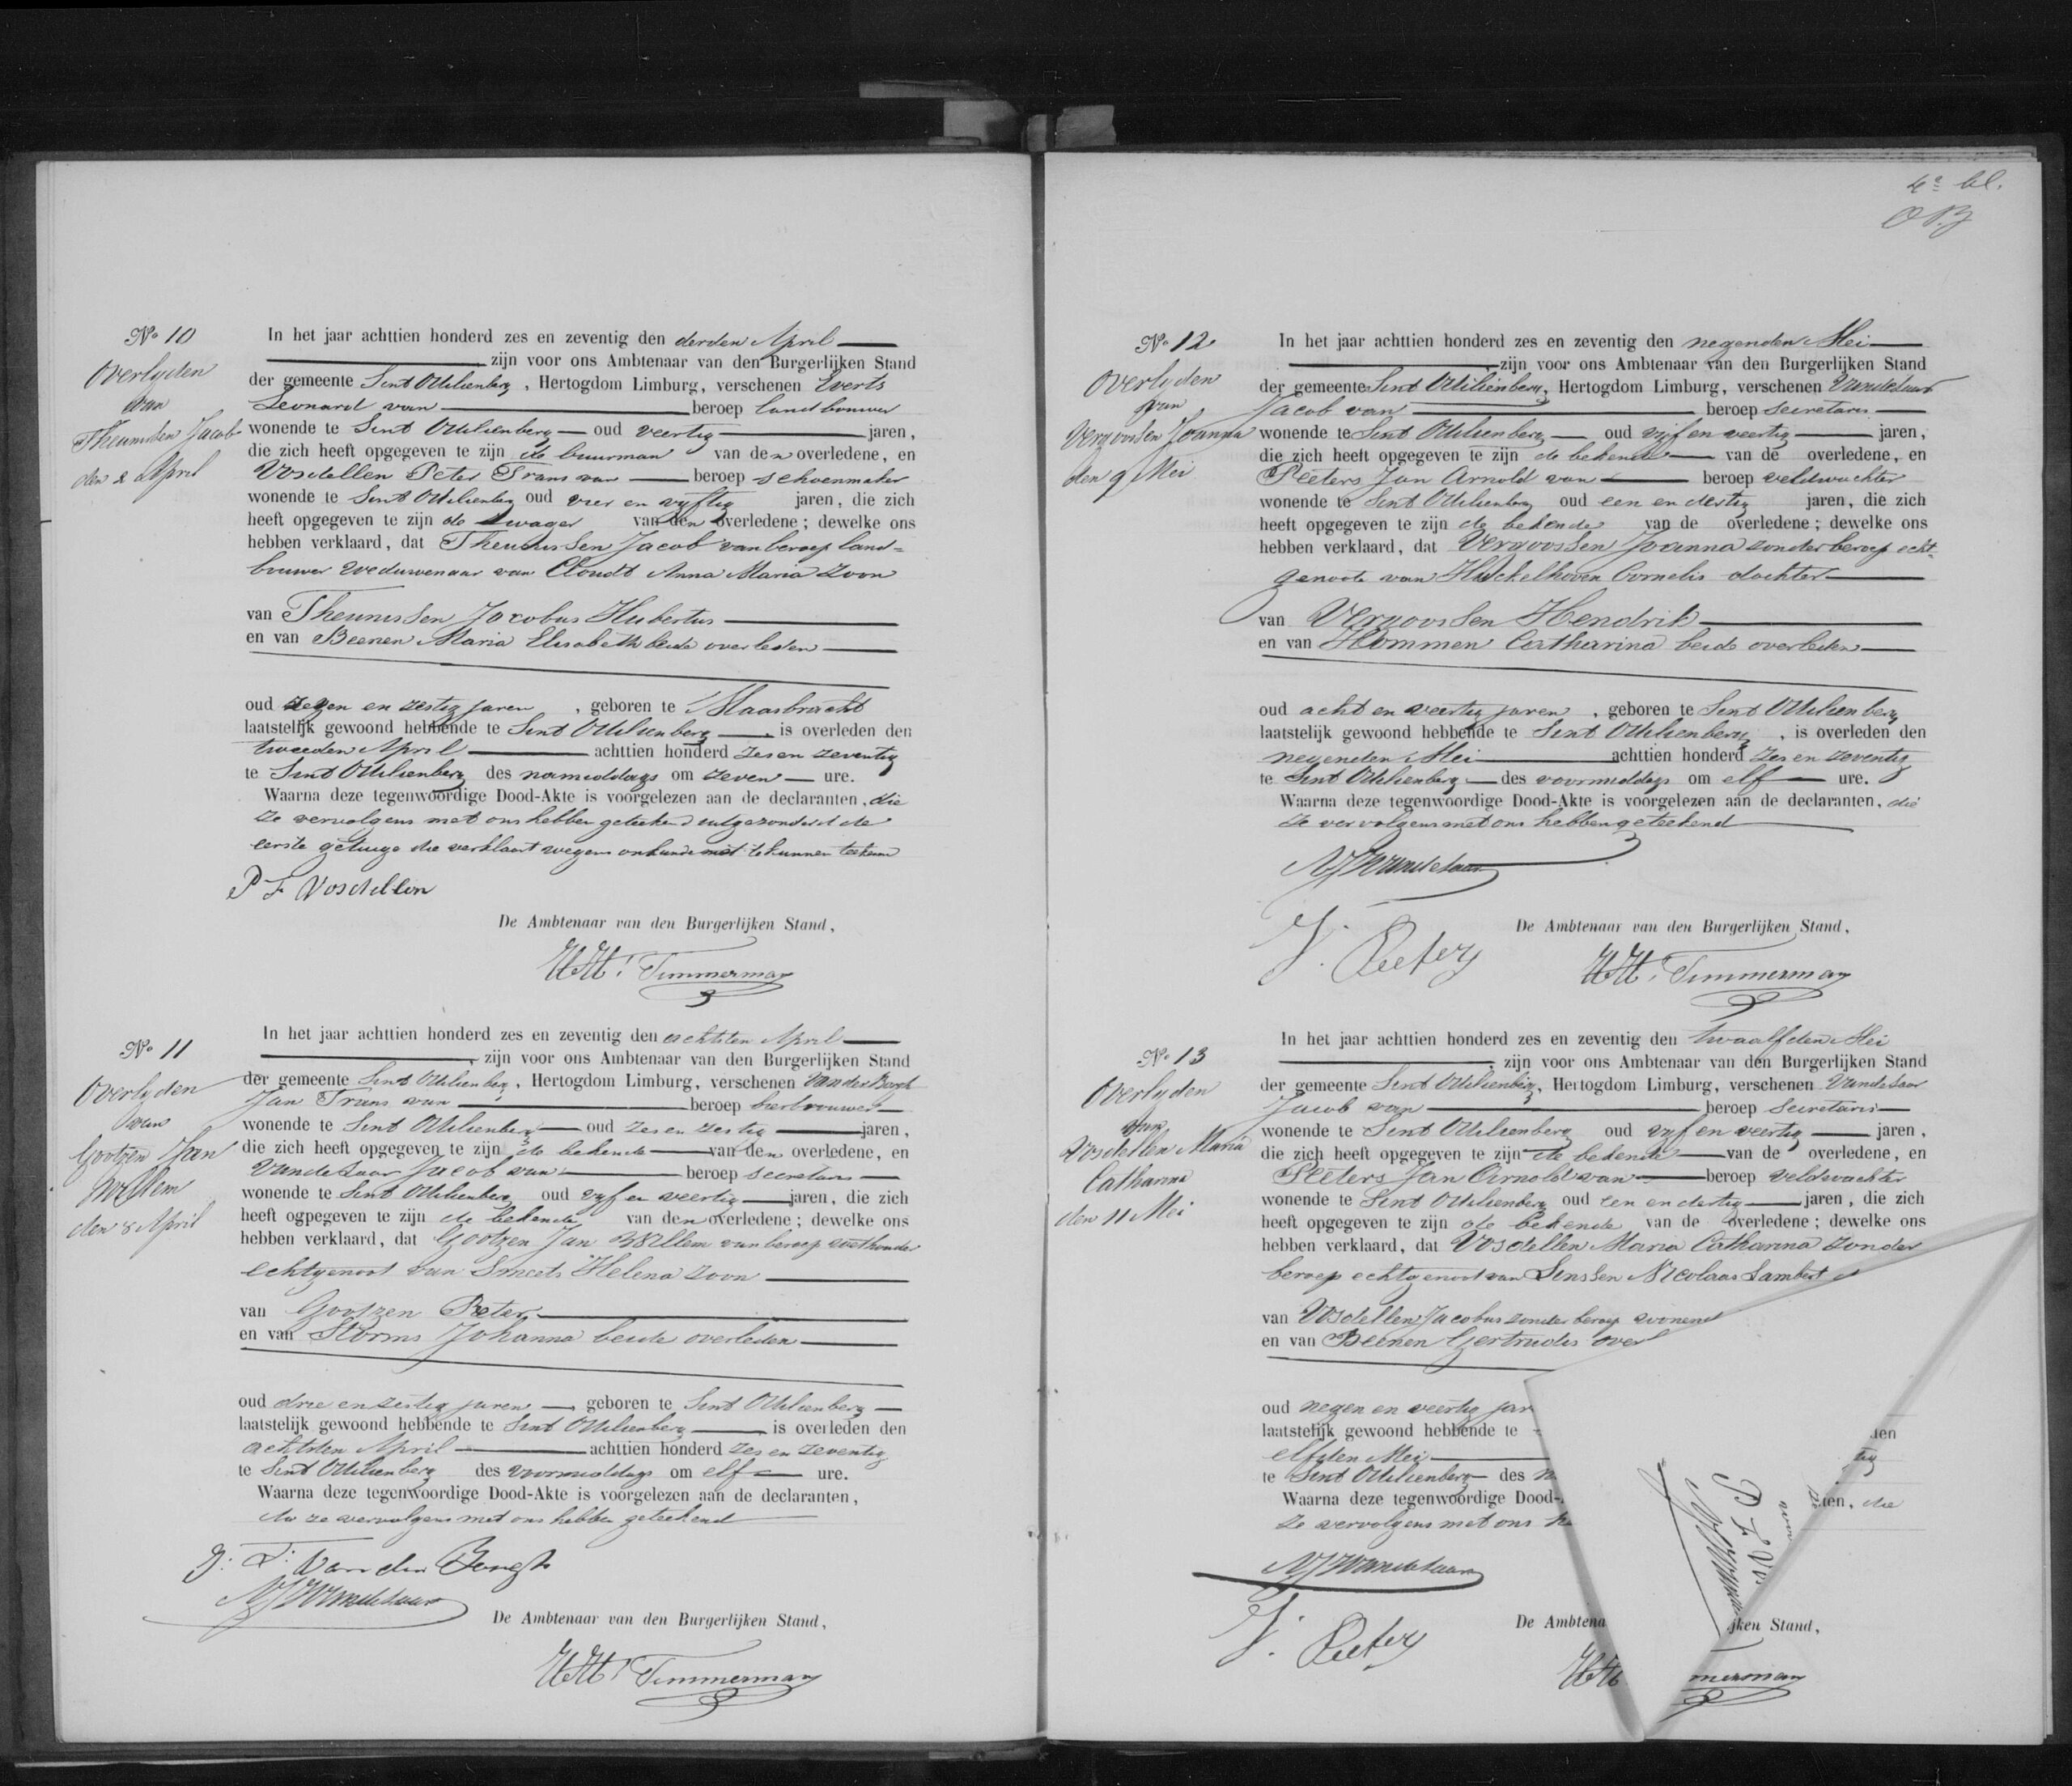 No 10
Overlyden
van
Theunissen Jacob
den 2 April
In het jaar achttien honderd zes en zeventig den derden April
zijn voor ons Ambtenaar van den Burgerlijken Stand
der gemeente Sint Odilienberg, Hertogdom Limburg, verschenen Everts
Leonard van beroep landbouwer
wonende te Sint Odilienberg oud veertig jaren,
die zich heeft opgegeven te zijn de buurman van den overledene, en
Vosdellen Peter Frans van beroep schoenmaker
wonende te Sint Odilienberg oud vier en vyftig jaren, die zich
heeft opgegeven te zijn de zwager van den overledene; dewelke ons
hebben verklaard, dat Theunissen Jacob van beroep land=
bouwer weduwenaar van Cloudt Anna Maria zoon
van Theunissen Jacobus Hubertus
en van Beenen Maria Elisabeth beide overleden
oud zegen en zestig jaren, geboren te Maasbracht
laatstelijk gewoond hebbende te Sint Odilienberg, is overleden den
tweeden April achttien honderd zes en zeventig
te Sint Odilienberg des namiddags om zeven ure.
Waarna deze tegenwoordige Dood-Akte is voorgelezen aan de declaranten, die
ze vervolgens met ons hebben geteekend uitgezonderd de
eerste getuige die verklaart wegens onkunde niet te kunnen teekenen
P F Vosdellen
De Ambtenaar van den Burgerlijken Stand,
HH. Timmermans
No 11
Overlyden
van
Gootzen Jan
Willem
den 8 April
In het jaar achttien honderd zes en zeventig den achtsten April
zijn voor ons Ambtenaar van den Burgerlijken Stand
der gemeente Sint Odilienberg, Hertogdom Limburg, verschenen Van der Bergh
Jan Frans van beroep bierbrouwer
wonende te Sint Odilienberg oud zes en zestig jaren,
die zich heeft opgegeven te zijn de bekende van den overledene, en
Vandelaar Jacob van beroep secretaris
wonende te Sint Odilienberg oud vyf en veertig jaren, die zich
heeft ogpegeven te zijn de bekende van den overledene; dewelke ons
hebben verklaard, dat Gootzen Jan Willem van beroep wethouder
echtgenoot van Smeets Helena zoon
van Gootzen Peter
en van Storms Johanna beide overleden
oud drie en zestig jaren, geboren te Sint Odilienberg
laatstelijk gewoond hebbende te Sint Odilienberg, is overleden den
achtsten April achttien honderd zes en zeventig
te Sint Odilienberg des voormiddags om elf ure.
Waarna deze tegenwoordige Dood-Akte is voorgelezen aan de declaranten,
die ze vervolgens met ons hebben geteekend
J. F. Van den Bergh
Vandelaar
De Ambtenaar van den Burgerlijken Stand,
HH. Timmermans
4e bl.
No 12
Overlyden
van
Vergoossen Joanna
den 9 Mei
In het jaar achttien honderd zes en zeventig den negenden Mei
zijn voor ons Ambtenaar van den Burgerlijken Stand
der gemeente Sint Odilienberg, Hertogdom Limburg, verschenen Vandelaar
Jacob van beroep secretaris
wonende te Sint Odilienberg oud vyf en veertig jaren,
die zich heeft opgegeven te zijn de bekende van de overledene, en
Peeters Jan Arnold van beroep veldwachter
wonende te Sint Odilienberg oud een en dertig jaren, die zich
heeft opgegeven te zijn de bekende van de overledene; dewelke ons
hebben verklaard, dat Vergoossen Joanna zonder beroep echt-
genoote van Huckelhoven Cornelis dochter
van Vergoossen Hendrik
en van Hommen Catharina beide overleden
oud acht en veertig jaren, geboren te Sint Odilienberg
laatstelijk gewoond hebbende te Sint Odilienberg, is overleden den
negenden Mei achttien honderd zes en zeventig
te Sint Odilienberg des voormiddags om elf ure.
Waarna deze tegenwoordige Dood-Akte is voorgelezen aan de declaranten, die
ze vervolgens met ons hebben geteekend
Vandelaar
J. Peeters
De Ambtenaar van den Burgerlijken Stand,
HH. Timmermans
No 13
Overlyden
van
Vosdellen Maria
Catharina
den 11 Mei
In het jaar achttien honderd zes en zeventig den twaalfden Mei
zijn voor ons Ambtenaar van den Burgerlijken Stand
der gemeente Sint Odilienberg, Hertogdom Limburg, verschenen Vandelaar
Jacob van beroep secretaris
wonende te Sint Odilienberg oud vyf en veertig jaren,
die zich heeft opgegeven te zijn de bekende van de overledene, en
Peeters Jan Arnold van beroep veldwachter
wonende te Sint Odilienberg oud een en dertig jaren, die zich
heeft opgegeven te zijn de bekende van de overledene; dewelke ons
hebben verklaard, dat Vosdellen Maria Catharina zonder
beroep echtgenoot van Linssen Nicolaas Lambert
van Vosdellen Jacobus zonder beroep wonend
en van Beenen Gertrudis over
oud negen en veertig jar
laatstelijk gewoond hebbende te den
elfden Mei tig
te Sint Odilienberg des
Waarna deze tegenwoordige Dood- ten, die
ze vervolgens met ons he
P F Vo
Vandelaar
J. Peeters
De Ambtena jken Stand,
HH mermans